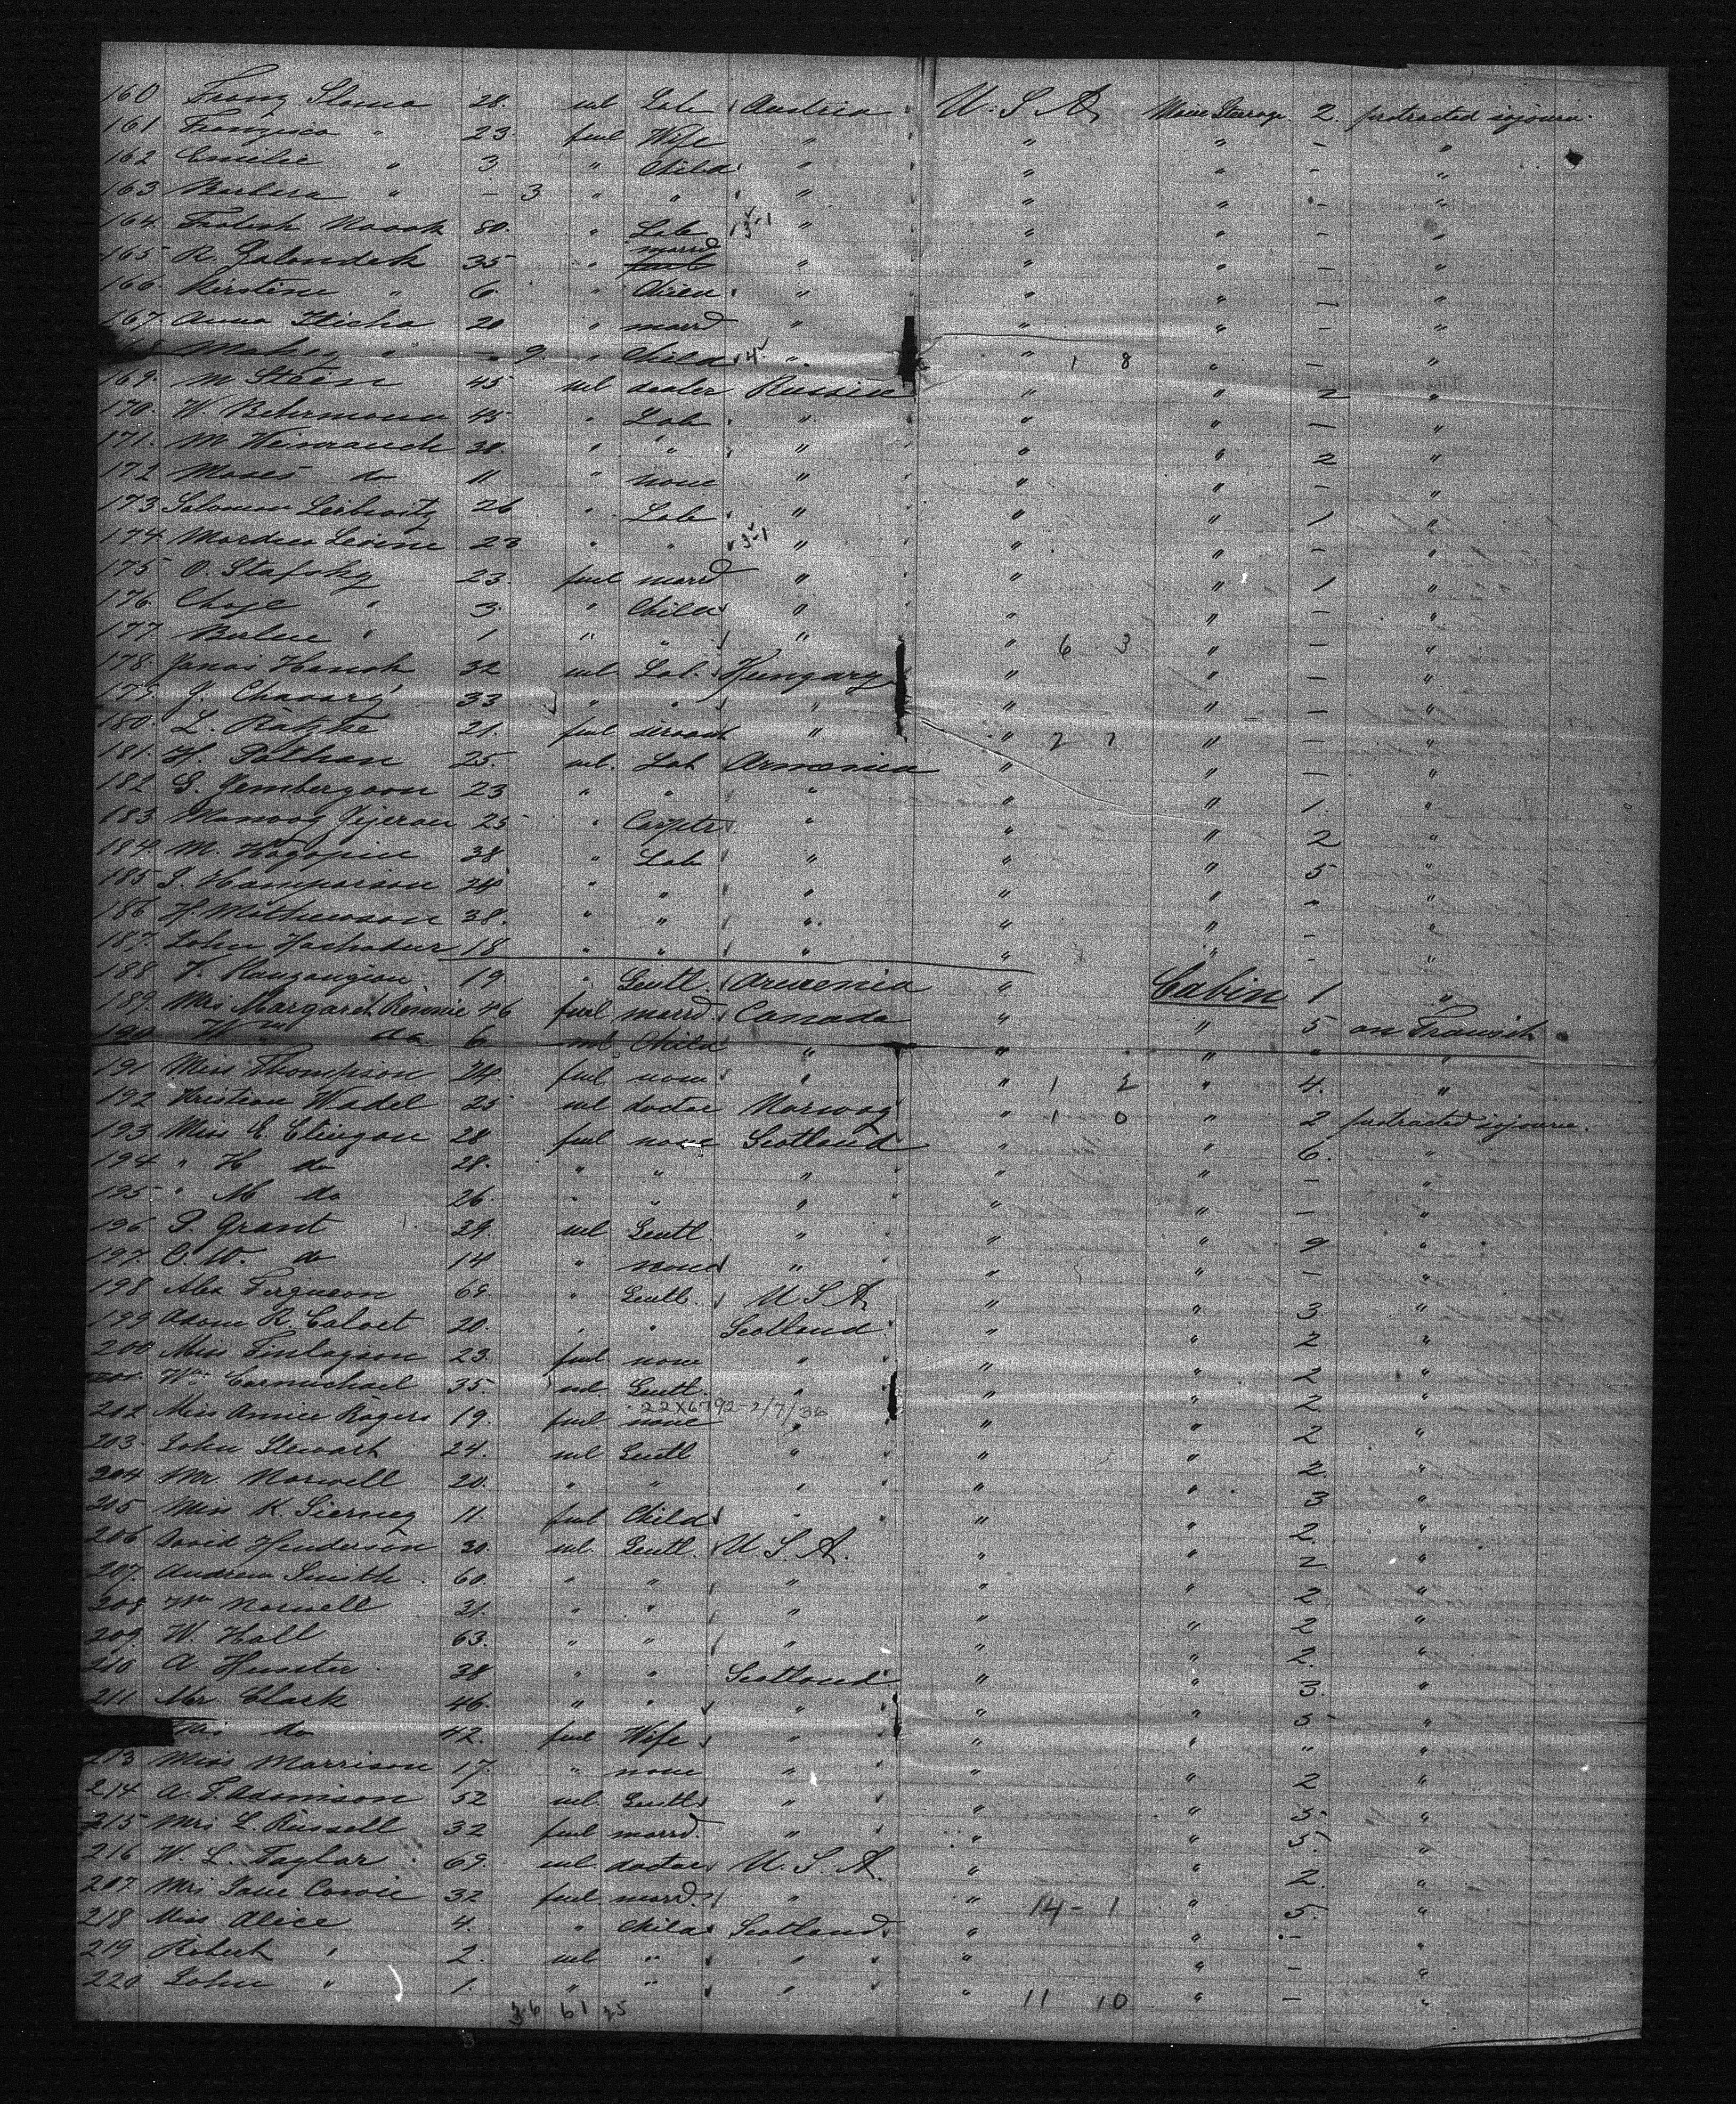 160 Franz Slama 28. ml Lab Austria U.S.A. Main Steerage. 2. protracted sojourn.
161 Franzisca " 23 feml Wife " " " - "
162 Emilie " 3 " Child " " " - "
163 Barbara " - 3 " " " " " - "
164. 80. " Lab 3-1 " " " - "
165 R. 35 " marrd " " " - "
166. Kirstine " 6. " Child " " " - "
167. Anna 20 " marrd " " " - "
" - 9. " Child 4 " " 1 8 " - "
169. M Stein 45 ml dealer Russia " " 2 "
170. W. Behrmann 45 " Lab " " " - "
171. M. Weinrauch 38. " " " " " 2 "
172 Moses do 11 " none " " " - "
173 Salomon Leibwitz 26 " Lab " " " 1 "
174 Mordica Levine 23 " " 3-1 " " " - "
175 O. Stafsky 23. feml marrd " " " 1 "
176. Chaje " 3. " Child " " " - "
177. " 1 " " " " 6 3 " - "
178. Janos Hanok 32 ml Lab. Hungary " " - "
179. J. 33 " " " " " - "
180. L. Ratzke 21. feml servant " " 2 1 " - "
181. H. 25. ml. Lab Armenia " " - "
182 S. 23 " " " " " 1 "
183. Manoog 25 " Carptr " " " 2 "
184 M. Hagopin 38 " Lab " " " 5 "
185 S. Hamparson 24 " " " " " " "
186 H. Mathewson 38. " " " " " - "
187. John Hachadur 18 " " " " " - "
188 19. " Gentl. Armenia " Cabin 1 "
189. Mrs Margaret Rennie 46 feml marrd Canada " " 5 on Transit
190 Wm do 6 ml Child " " " " "
191 Miss Thompson 24. feml none " " 1 2 " 4. "
192 Kristian Wadel 25 ml doctor Norway " 1 0 " 2 protracted sojourn.
193 Miss E. 28 feml none Scotland " " 6. "
194 " H do 28. " " " " " - "
195 " M do 26. " " " " " - "
196 P Grant 39. ml Gentl " " " 9 "
197. C. W. do 14 " none " " " - "
198 Alex Ferguson 69. " Gentl. U S A " " 3 "
199 Adam R. Calvet 20. " " Scotland " " 2 "
200 Miss Finlayson 23. feml none " " " 2 "
201. Wm Carmichael 35. ml Gentl. " " " 2 "
22X6792-2/7/36
202 Miss Annie Rogers 19. feml none " " " 2 "
203. John Stewart 24. ml Gentl " " " 2. "
204 Mr. Norwell 20. " " " " " 3 "
205 Miss K. 11. feml Child " " " 2. "
206 David Henderson 30. ml. Gentl. U.S.A. " " 2 "
207. Andrew Smith 60. " " " " " 2 "
208 Wm Norwell 31. " " " " " 2 "
209. W. Hall 63. " " " " " 2. "
210 A Hunter 38 " " Scotland " " 3. "
211 Mr. Clark 46. " " " " " 5 "
do 42. feml Wife " " " " "
213 Miss Morrison 17. " none " " " 2 "
214 A. F. Adamson 52 ml. Gentl " " " 5 "
215 Mrs L. Russell 32 feml marrd. " " " 5. "
216 W. L. Taylor 69. ml. doctor U.S.A. " " 2. "
217 Mrs Jane Cowie 32 feml marrd. " " 14-1 " 5. "
218 Miss Alice 4. " Child Scotland " " - "
219 Robert " 2. ml " " " " - "
220 John " 1. " " " " 11 10 " - "
36 61 25